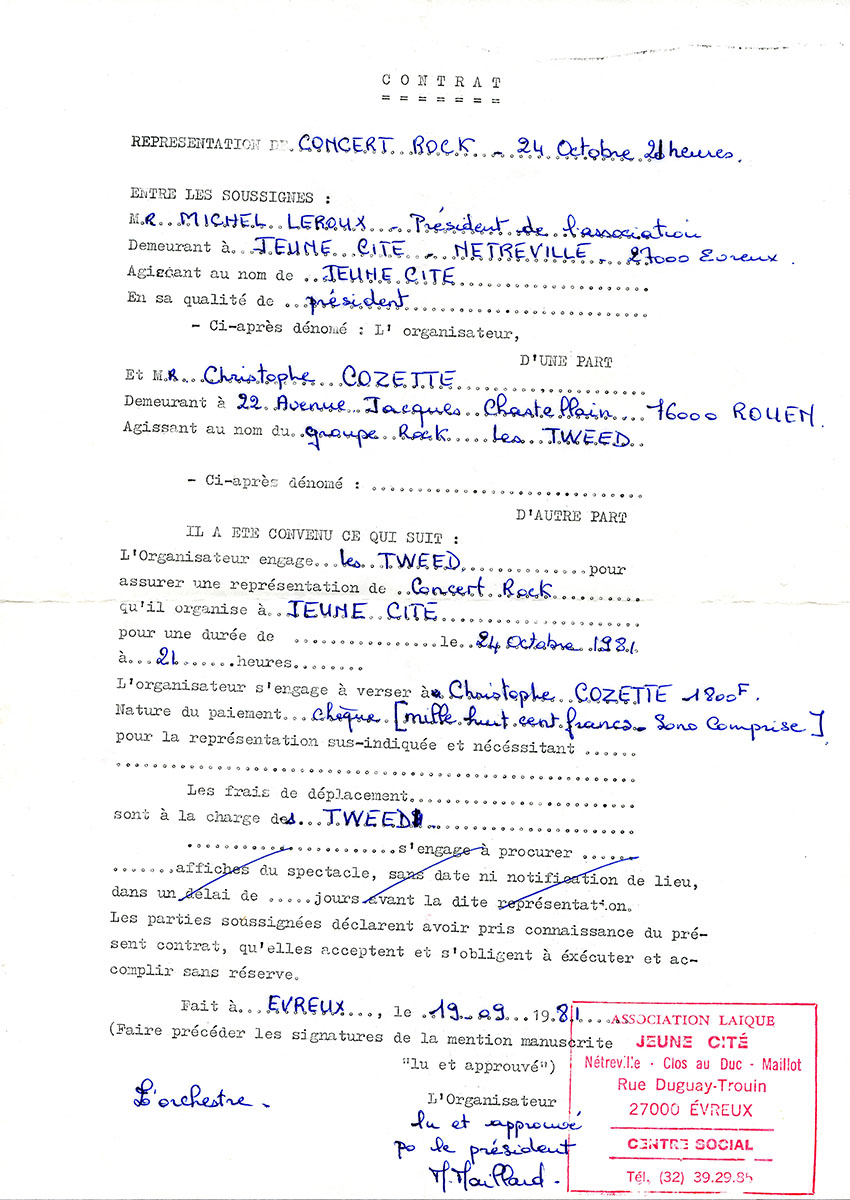 C O N T R A T
= = = = = = =
REPRESENTATION DE CONCERT ROCK - 24 Octobre 21 heures.
ENTRE LES SOUSSIGNES :
M.R. MICHEL LEROUX - Président de l'association
Demeurant à JEUNE CITE - NETREVILLE - 27000 Evreux.
Agissant au nom de JEUNE CITE
En sa qualité de président
- Ci-après dénomé : L' organisateur,
D'UNE PART
Et M.R. Christophe COZETTE
Demeurant à 22 Avenue Jacques Chastellain 76000 ROUEN.
Agissant au nom du groupe Rock les TWEED
- Ci-après dénomé : ..............................
D'AUTRE PART
IL A ETE CONVENU CE QUI SUIT :
L'Organisateur engage les TWEED pour
assurer une représentation de Concert Rock
qu'il organise à JEUNE CITE
pour une durée de ................ le 24 Octobre 1981
à 21 heures........
L'organisateur s'engage à verser à Christophe COZETTE 1800F.
Nature du paiement chèque [mille huit cent francs - Sono Comprise]
pour la représentation sus-indiquée et nécéssitant ......
..........................................................
Les frais de déplacement.........................
sont à la charge des TWEED
.......................s'engage à procurer ......
.......affiches du spectacle, sans date ni notification de lieu,
dans un délai de .....jours avant la dite représentation.
Les parties soussignées déclarent avoir pris connaissance du pré-
sent contrat, qu'elles acceptent et s'obligent à éxécuter et ac-
complir sans réserve.
Fait à EVREUX, le 19-09 1981
(Faire précéder les signatures de la mention manuscrite
"lu et approuvé")
L'orchestre -
L'Organisateur
lu et approuvé
po le président
M. Maillard -
ASSOCIATION LAIQUE
JEUNE CITÉ
Nétreville - Clos au Duc - Maillot
Rue Duguay-Trouin
27000 ÉVREUX
CENTRE SOCIAL
Tél. (32) 39.29.85